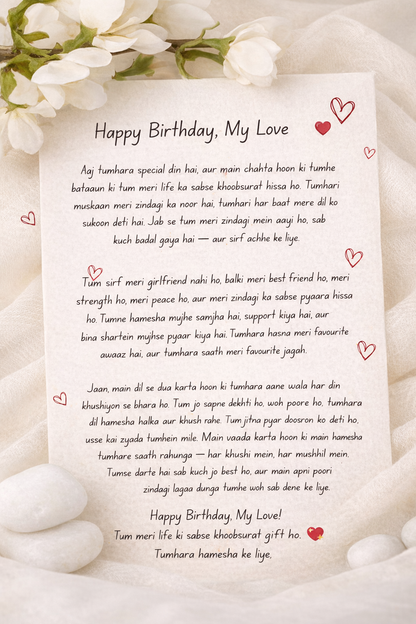 Happy Birthday, My Love
Aaj tumhara special din hai, aur main chahta hoon ki tumhe
bataaun ki tum meri life ka sabse khoobsurat hissa ho. Tumhari
muskaan meri zindagi ka noor hai, tumhari har baat mere dil ko
sukoon deti hai. Jab se tum meri zindagi mein aayi ho, sab
kuch badal gaya hai — aur sirf achhe ke liye.
Tum sirf meri girlfriend nahi ho, balki meri best friend ho, meri
strength ho, meri peace ho, aur meri zindagi ka sabse pyaara hissa
ho. Tumne hamesha mujhe samjha hai, support kiya hai, aur
bina shartein mujhse pyaar kiya hai. Tumhara hasna meri favourite
awaaz hai, aur tumhara saath meri favourite jagah.
Jaan, main dil se dua karta hoon ki tumhara aane wala har din
khushiyon se bhara ho. Tum jo sapne dekhti ho, woh poore ho, tumhara
dil hamesha halka aur khush rahe. Tum jitna pyar doosron ko deti ho,
usse kai zyada tumhein mile. Main vaada karta hoon ki main hamesha
tumhare saath rahunga — har khushi mein, har mushhil mein.
Tumse darte hai sab kuch jo best ho, aur main apni poori
zindagi lagaa dunga tumhe woh sab dene ke liye.
Happy Birthday, My Love!
Tum meri life ki sabse khoobsurat gift ho.
Tumhara hamesha ke liye,